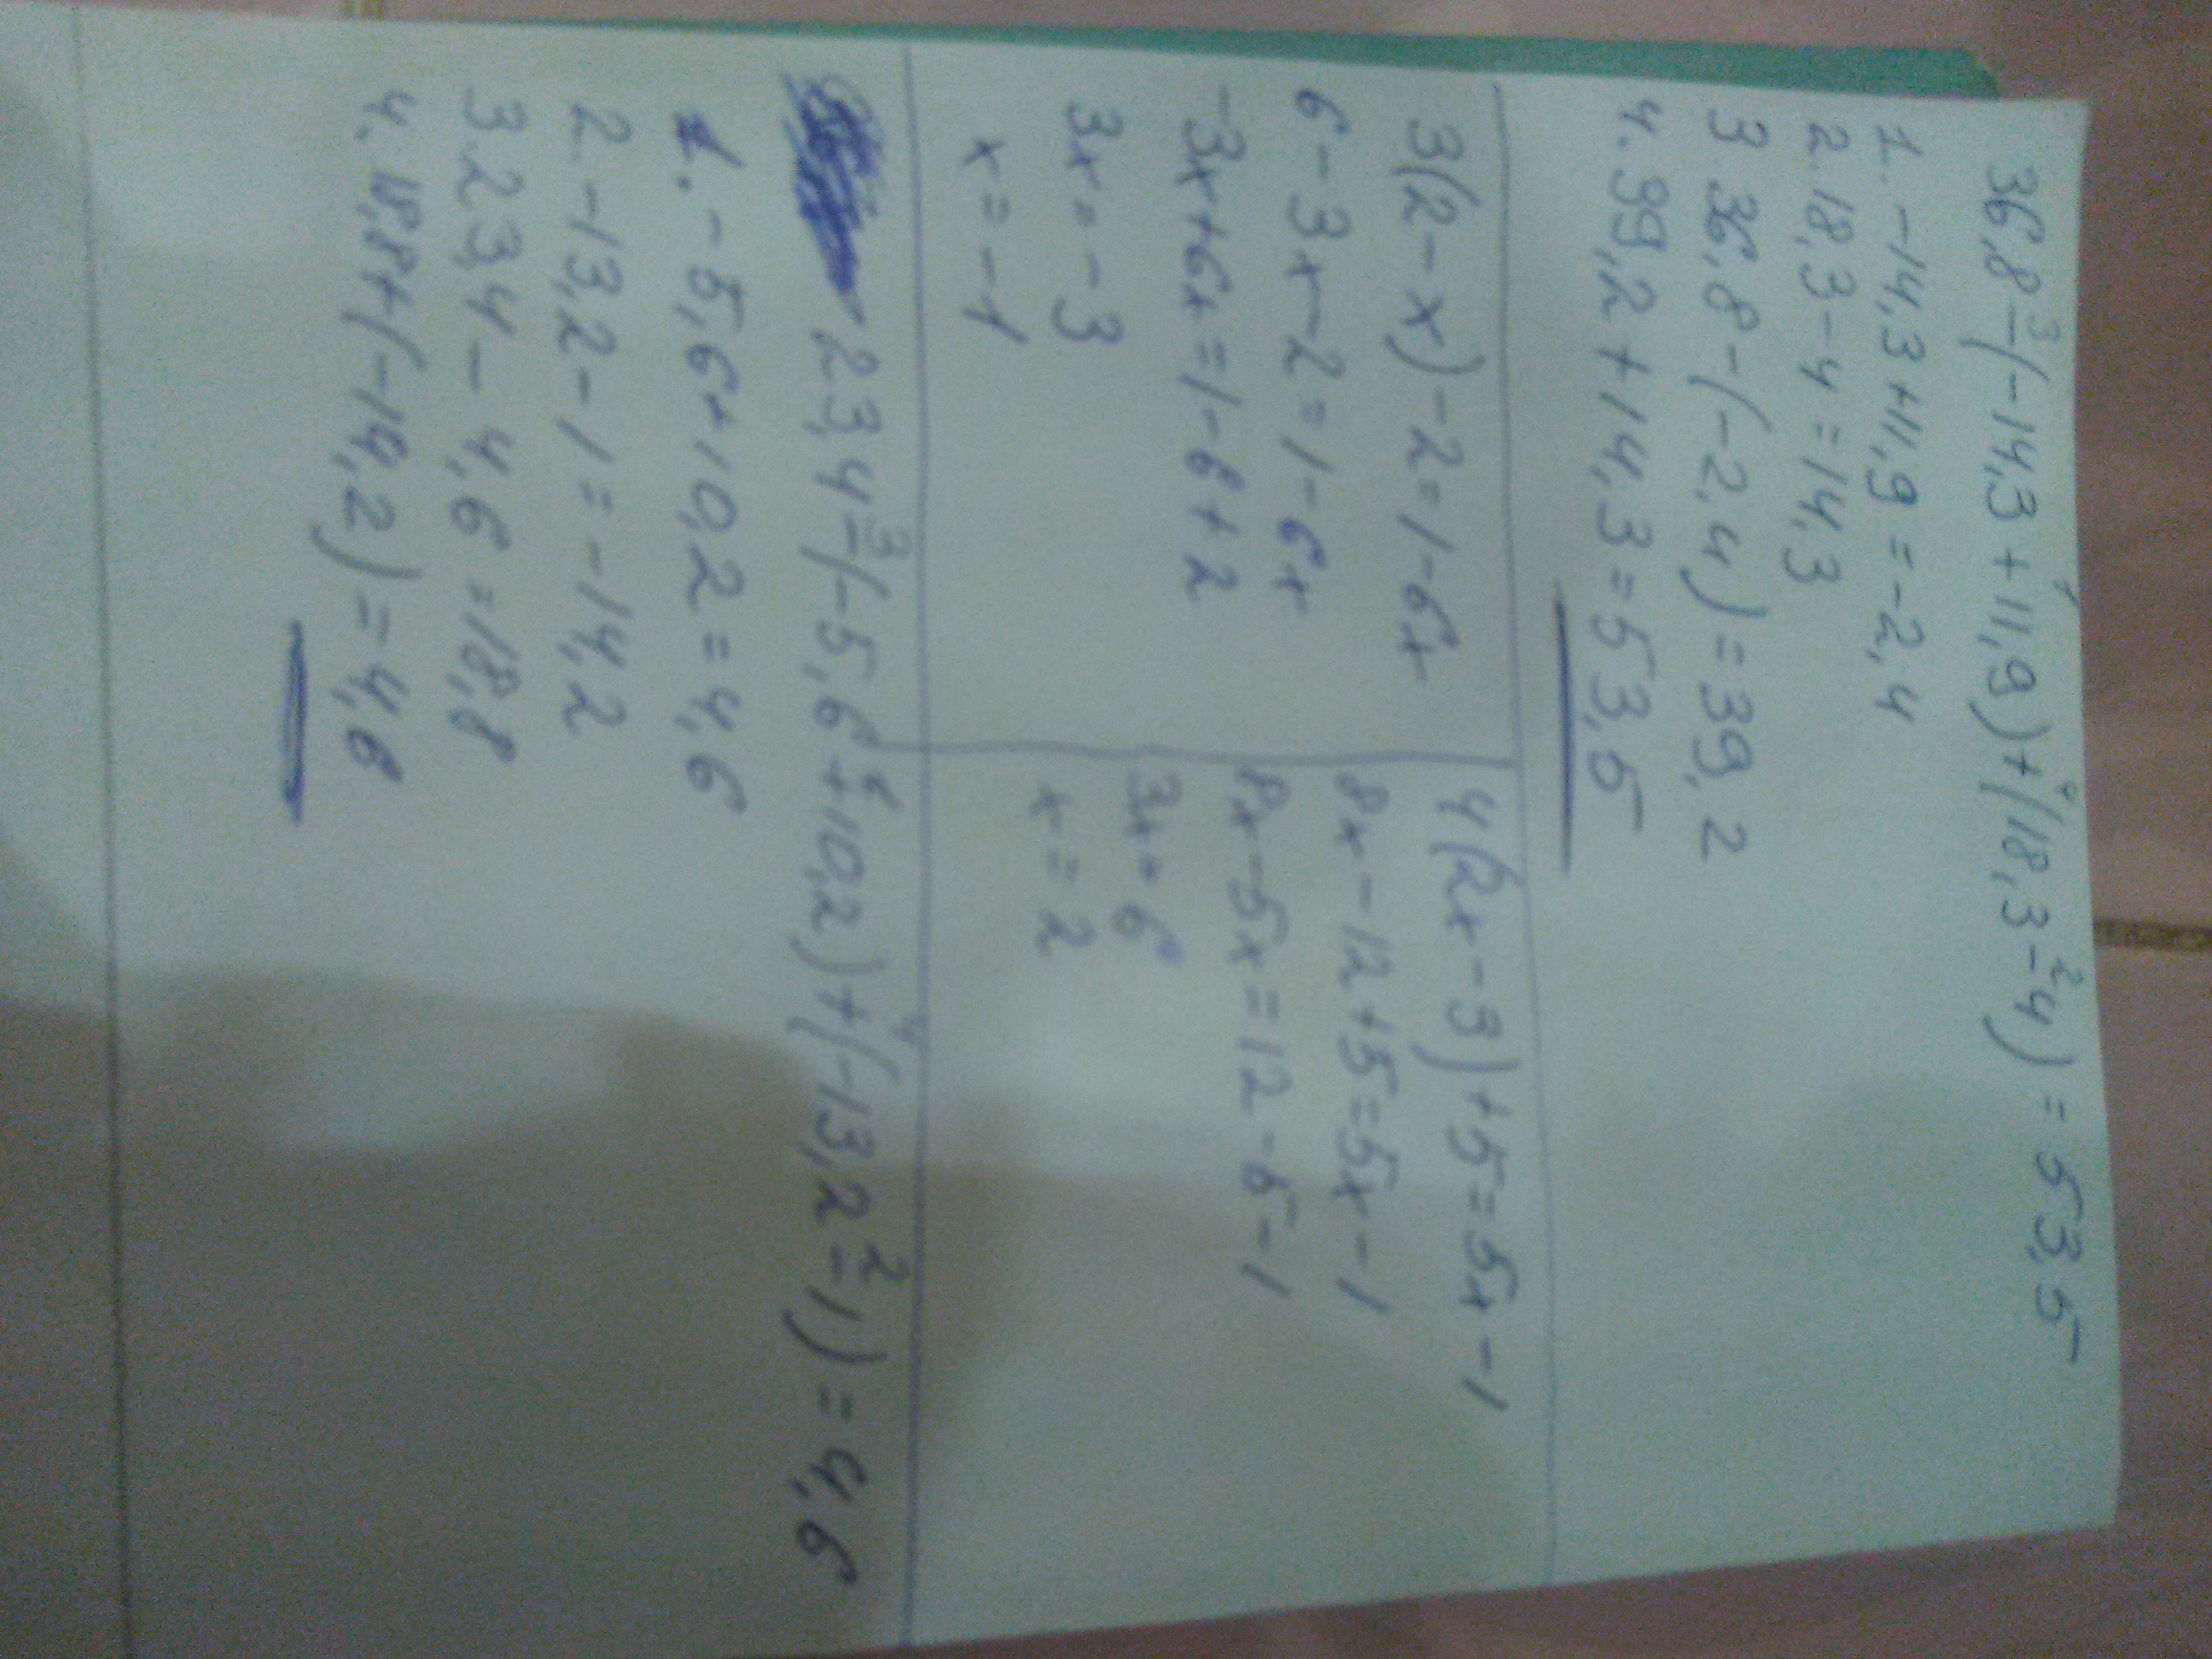 36,8 -³ (-14,3 +¹ 11,9) +⁴ (18,3 -² 4) = 53,5
1. -14,3+11,9 = -2,4
2. 18,3-4 = 14,3
3 36,8-(-2,4) = 39,2
4. 39,2+14,3 = 53,5
3(2-x)-2=1-6x
6-3x-2=1-6x
-3x+6x=1-6+2
3x=-3
x=-1
4(2x-3)+5=5x-1
8x-12+5=5x-1
8x-5x=12-5-1
3x=6
x=2
23,4 -³ (-5,6 +¹ 10,2) +⁴ (-13,2 -² 1) = 4,6
1. -5,6+10,2 = 4,6
2. -13,2-1 = -14,2
3. 23,4-4,6 = 18,8
4. 18,8+(-14,2) = 4,6